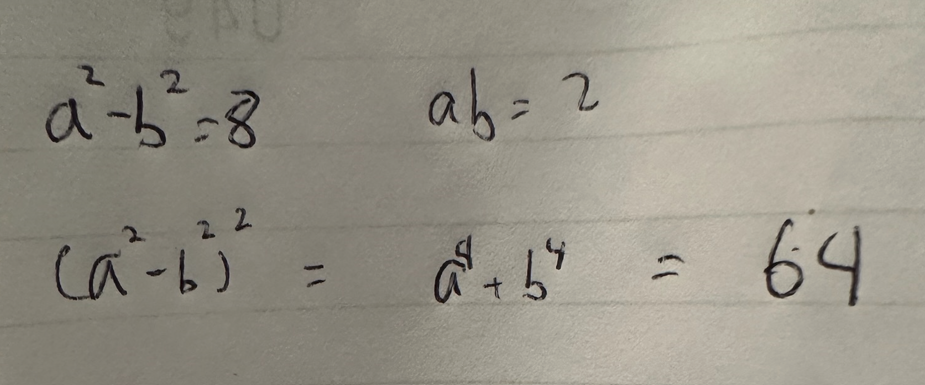 a² - b² = 8 ab = 2
(a² - b²)² = a⁴ + b⁴ = 64